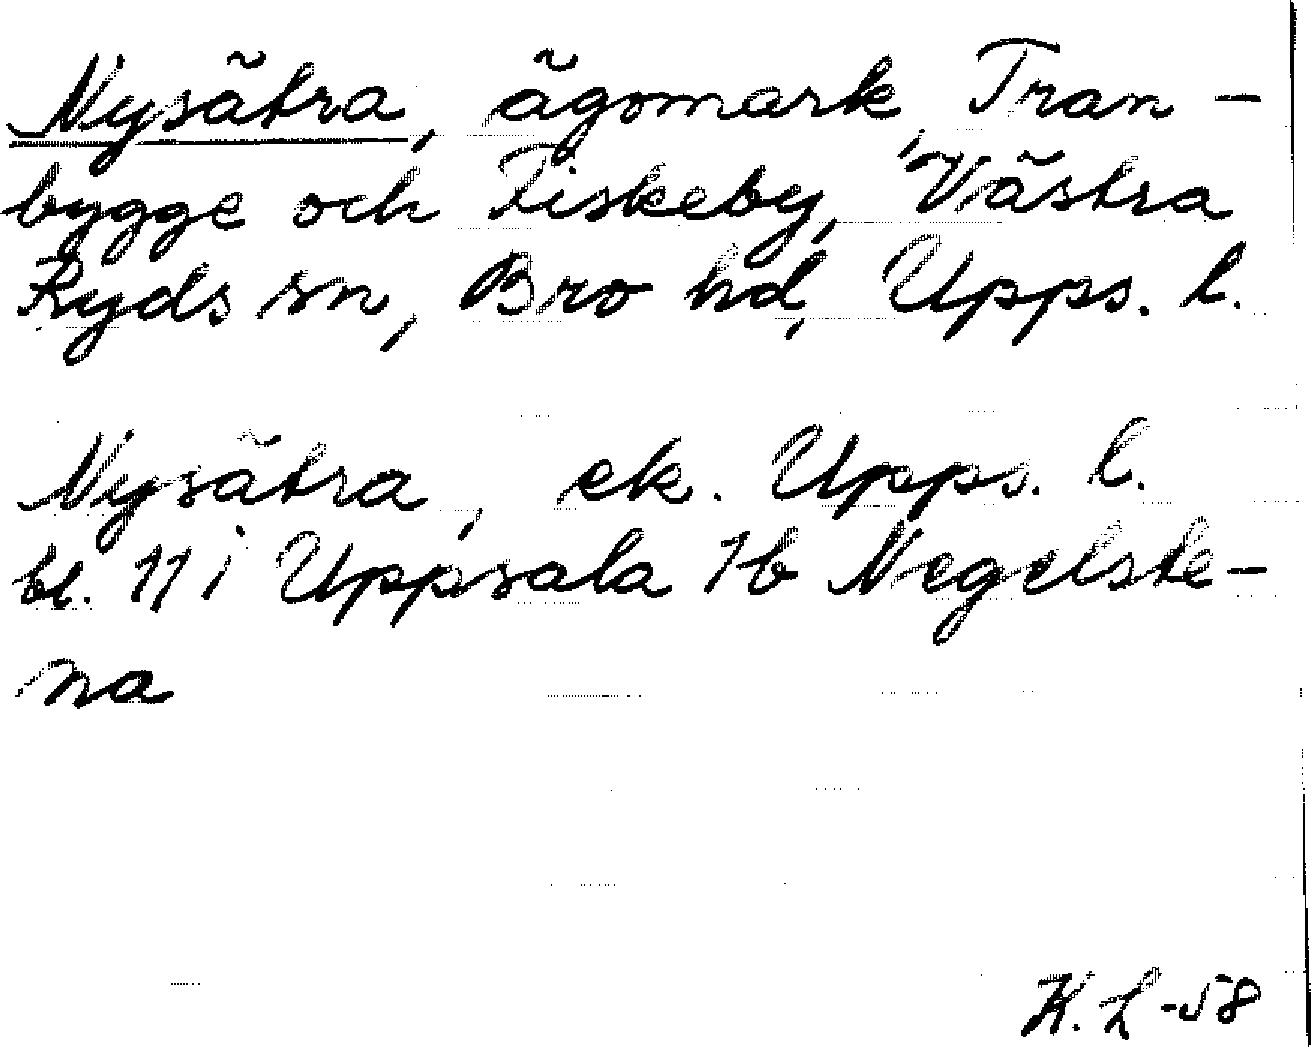 Nysätra, ägomark, Tran-
bygge och Fiskeby, Västra
Ryds sn, Bro hd, Upps. l.
Nysätra, ek. Upps. l.
bl. 11 i Uppsala 1b Negelste-
na
K. L-58